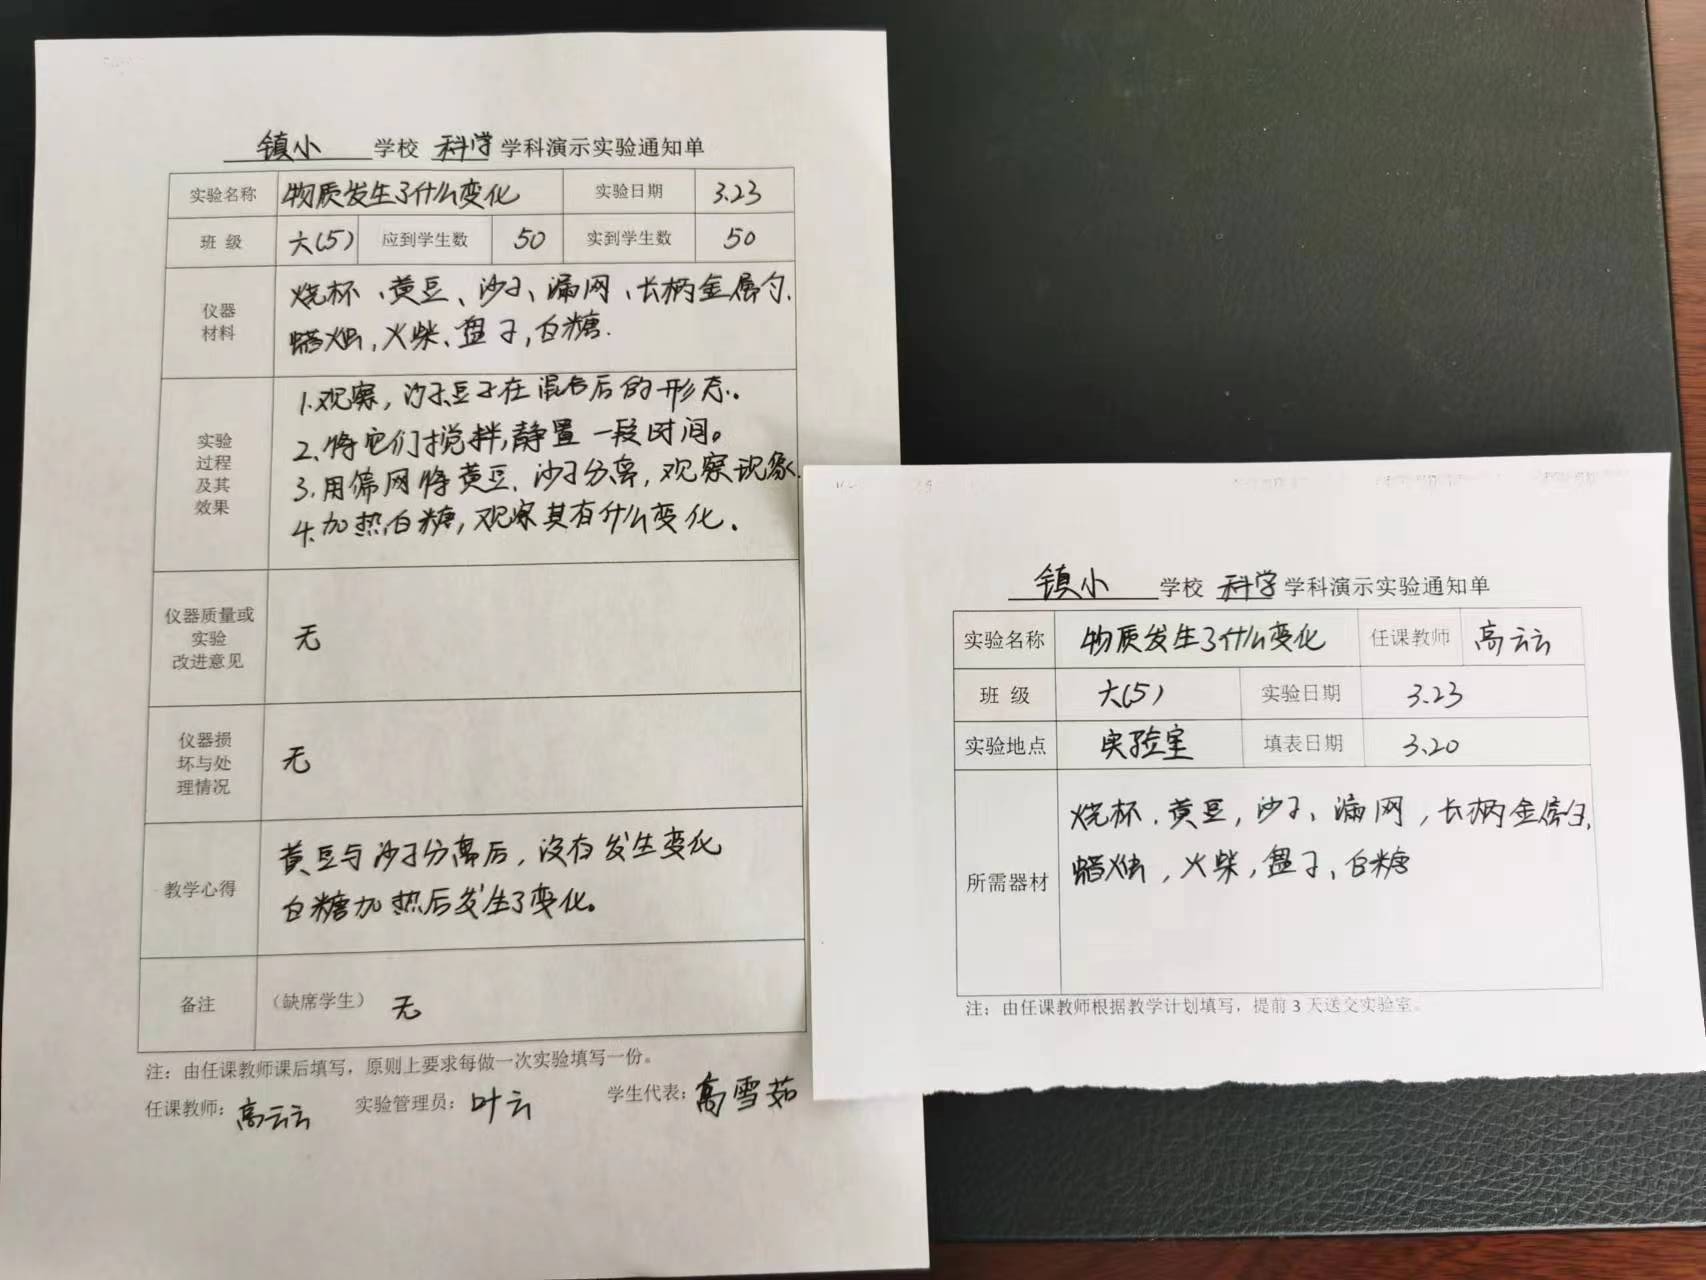 镇小 学校 科学 学科演示实验通知单
实验名称 物质发生了什么变化 实验日期 3.23
班 级 六(5) 应到学生数 50 实到学生数 50
仪器
材料
烧杯、黄豆、沙子、漏网、长柄金属勺、
蜡烛,火柴、盘子,白糖.
实验
过程
及其
效果
1.观察,沙子豆子在混合后的形态。
2、将它们搅拌,静置一段时间。
3.用筛网将黄豆、沙子分离,观察现象.
4.加热白糖,观察其有什么变化.
仪器质量或
实验
改进意见
无
仪器损
坏与处
理情况
无
教学心得
黄豆与沙子分离后,没有发生变化
白糖加热后发生了变化。
备注 (缺席学生) 无
注:由任课教师课后填写,原则上要求每做一次实验填写一份。
任课教师: 高云云 实验管理员: 叶云 学生代表: 高雪茹
镇小 学校 科学 学科演示实验通知单
实验名称 物质发生了什么变化 任课教师 高云云
班 级 六(5) 实验日期 3.23
实验地点 实验室 填表日期 3.20
所需器材
烧杯、黄豆,沙子、漏网,长柄金属勺,
蜡烛,火柴,盘子、白糖
注:由任课教师根据教学计划填写,提前 3 天送交实验室。